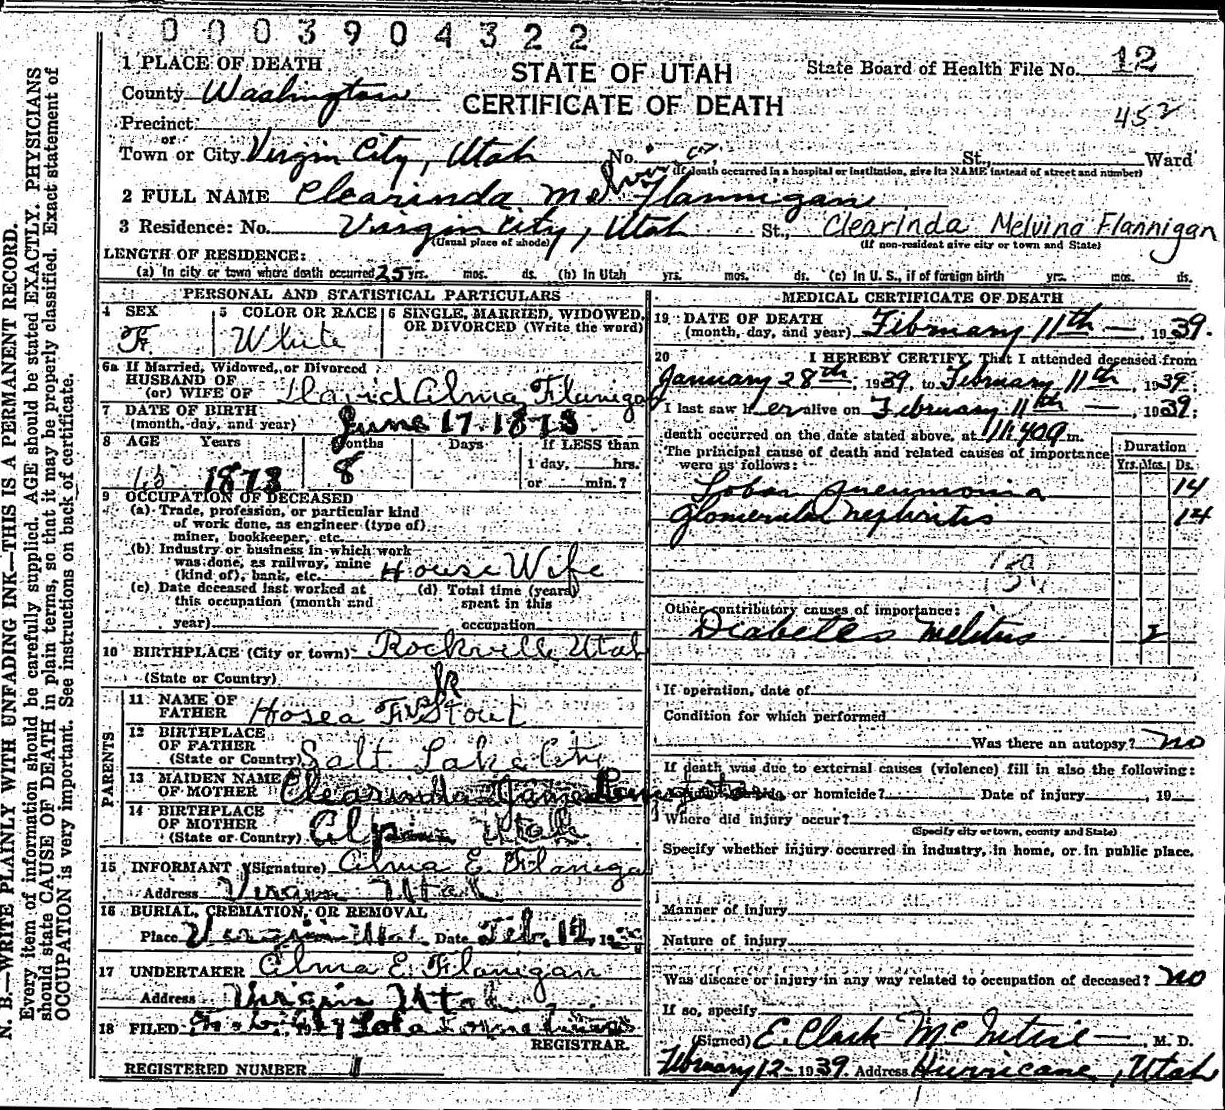 0 0 0 3 9 0 4 3 2 2
1 PLACE OF DEATH
STATE OF UTAH
CERTIFICATE OF DEATH
State Board of Health File No. 12
452
County Washington
Precinct
or
Town or City Virgin City, Utah No. St., Ward
(If death occurred in a hospital or institution, give its NAME instead of street and number)
2 FULL NAME Clearinda Melvina Flannigan
3 Residence: No. Virgin City, Utah St., Clearinda Melvina Flannigan
(Usual place of abode) (If non-resident give city or town and State)
LENGTH OF RESIDENCE:
(a) In city or town where death occurred 25 yrs. mos. ds. (b) In Utah yrs. mos. ds. (c) In U. S., if of foreign birth yrs. mos. ds.
PERSONAL AND STATISTICAL PARTICULARS
4 SEX
F.
5 COLOR OR RACE
White
6 SINGLE, MARRIED, WIDOWED,
OR DIVORCED (Write the word)
6a If Married, Widowed, or Divorced
HUSBAND OF
(or) WIFE OF David Alma Flanigan
7 DATE OF BIRTH
(month, day, and year) June 17 1873
8 AGE Years Months Days If LESS than
65 1873 8
1 day, hrs.
or min.?
9 OCCUPATION OF DECEASED
(a) Trade, profession, or particular kind
of work done, as engineer (type of)
miner, bookkeeper, etc.
(b) Industry or business in which work
was done, as railway, mine
(kind of), bank, etc. House Wife
(c) Date deceased last worked at
this occupation (month and
year)
(d) Total time (years)
spent in this
occupation
10 BIRTHPLACE (City or town) Rockville Utah
(State or Country)
PARENTS
11 NAME OF
FATHER Hosea Stout
JR
12 BIRTHPLACE
OF FATHER
(State or Country) Salt Lake City
13 MAIDEN NAME
OF MOTHER Clearinda Jane
14 BIRTHPLACE
OF MOTHER
(State or Country) Alpine Utah
15 INFORMANT (Signature) Alma E. Flanigan
Address Virgin Utah
16 BURIAL, CREMATION, OR REMOVAL
Place Virgin Utah Date Feb. 12, 19
17 UNDERTAKER Alma E. Flanigan
Address Virgin Utah
18 FILED
REGISTRAR.
REGISTERED NUMBER 1
MEDICAL CERTIFICATE OF DEATH
19 DATE OF DEATH
(month, day, and year) February 11th - , 1939.
20 I HEREBY CERTIFY, That I attended deceased from
January 28th, 1939, to February 11th, 1939;
I last saw her alive on February 11th - , 1939;
death occurred on the date stated above, at 11:40 a m.
The principal cause of death and related causes of importance
were as follows:
Duration
Yrs. Mos. Ds.
Lobar Pneumonia 14
Glomerular Nephritis 14
Other contributory causes of importance:
Diabetes Melitus 2
If operation, date of
Condition for which performed
Was there an autopsy? no
If death was due to external causes (violence) fill in also the following:
or homicide? Date of injury , 19
Where did injury occur?
(Specify city or town, county and State)
Specify whether injury occurred in industry, in home, or in public place.
Manner of injury
Nature of injury
Was disease or injury in any way related to occupation of deceased? no
If so, specify
(Signed) E. Clark McIntire , M. D.
February 12 - 1939 Address Hurricane, Utah
N. B.—WRITE PLAINLY WITH UNFADING INK—THIS IS A PERMANENT RECORD.
Every item of information should be carefully supplied. AGE should be stated EXACTLY. PHYSICIANS
should state CAUSE OF DEATH in plain terms, so that it may be properly classified. Exact statement of
OCCUPATION is very important. See instructions on back of certificate.